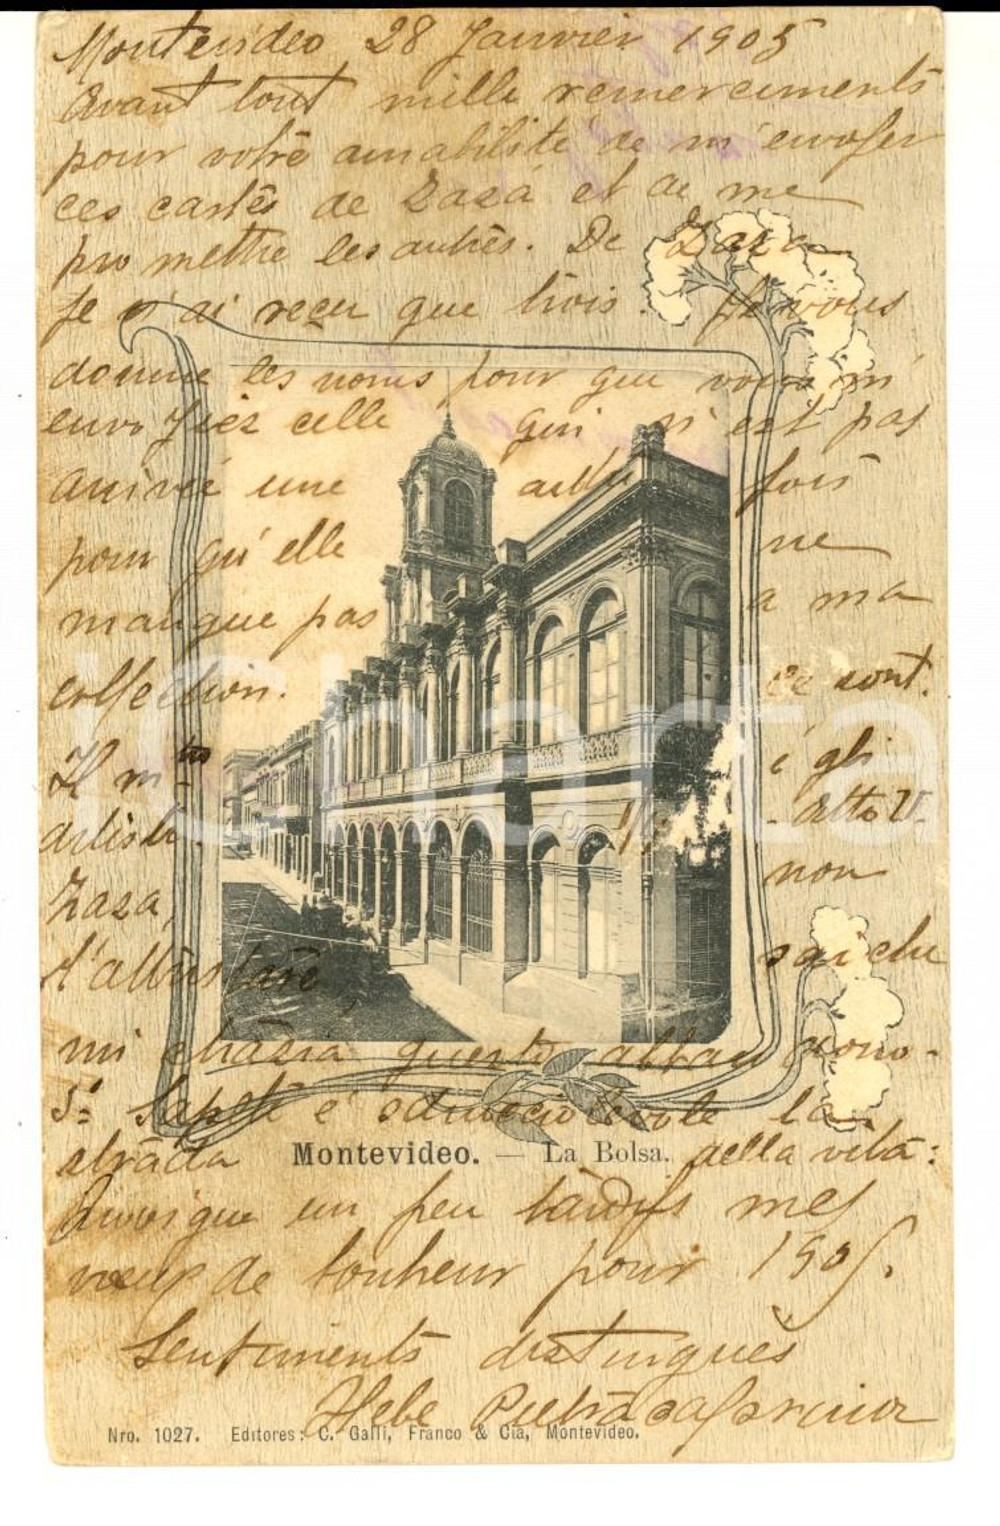 Montevideo 28 Janvier 1905
Avant tout mille remerciements
pour votre amabilité de m'envoyer
ces cartes de Zazá et de me
pro mettre les autres. De Zaza
Je n'ai reçu que trois. Je vous
donne les noms pour que vous m'
envo yiez celle qui n'est pas
arrivée une autre fois
pour qu'elle ne
manque pas a ma
collection. ce sont.
Il m é gli
artisti. - atto V.
Zaza, non
sai che
mi questo
5º la
strada della vita:
Montevideo. — La Bolsa.
Quoique un peu tardifs mes
voeux de bonheur pour 1905.
Sentiments distingués
Hebe
Nro. 1027. Editores: C. Galli, Franco & Cía, Montevideo.
iCharta